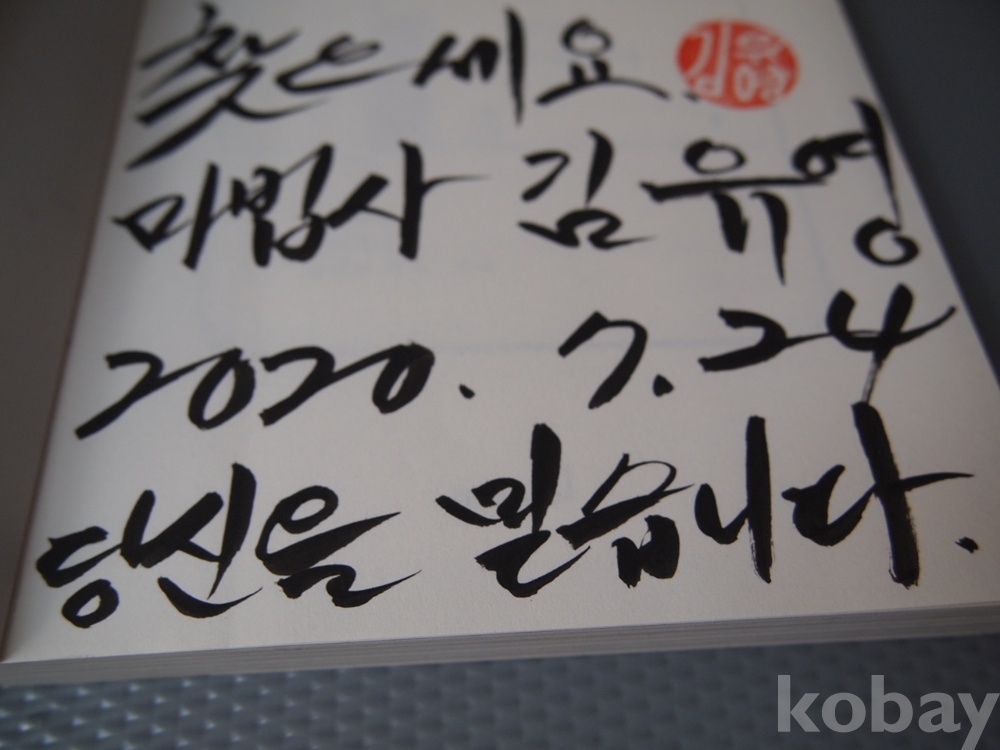 찾으세요. 김유영
마법사 김유영
2020. 7. 24
당신을 믿습니다.
kobay